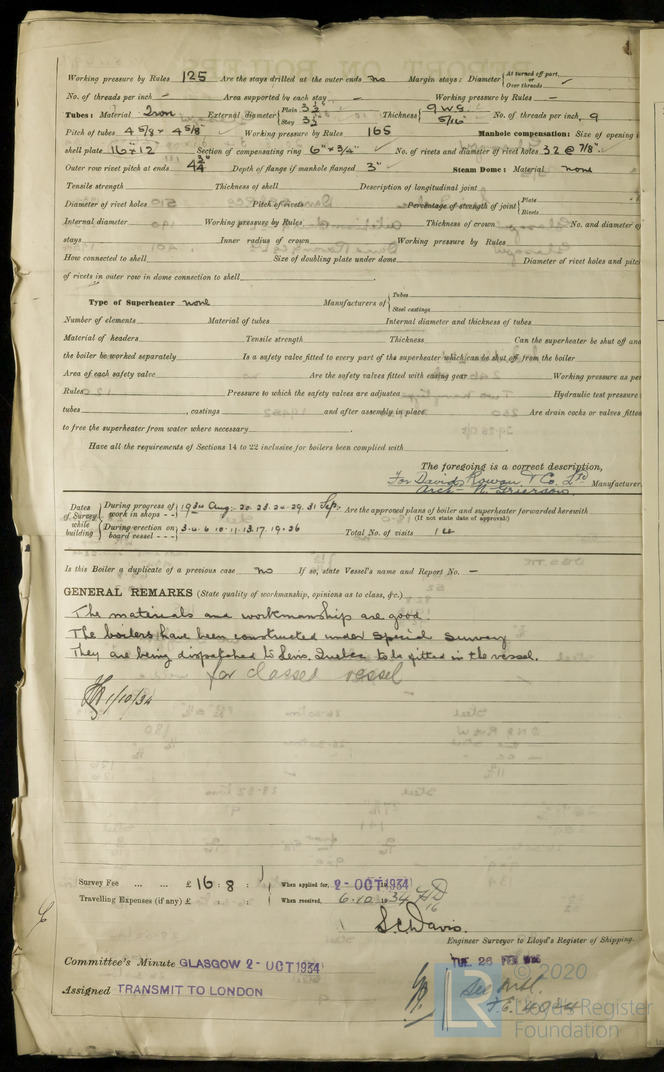 Working pressure by Rules 125 Are the stays drilled at the outer ends no Margin stays: Diameter { At turned off part, Over threads
No. of threads per inch - Area supported by each stay - Working pressure by Rules -
Tubes: Material Iron External diameter { Plain 3 1/2" Stay 3 1/2" Thickness { 9 WG. 5/16" No. of threads per inch 9
Pitch of tubes 4 5/8 x 4 5/8" Working pressure by Rules 165 Manhole compensation: Size of opening i
shell plate 16 x 12 Section of compensating ring 6" x 3/4" No. of rivets and diameter of rivet holes 32 @ 7/8"
Outer row rivet pitch at ends 4 3/4" Depth of flange if manhole flanged 3" Steam Dome: Material none
Tensile strength Thickness of shell Description of longitudinal joint
Diameter of rivet holes Pitch of rivets Percentage of strength of joint { Plate Rivets
Internal diameter Working pressure by Rules Thickness of crown No. and diameter of
stays Inner radius of crown Working pressure by Rules
How connected to shell Size of doubling plate under dome Diameter of rivet holes and pitch
of rivets in outer row in dome connection to shell
Type of Superheater none Manufacturers of { Tubes Steel castings
Number of elements Material of tubes Internal diameter and thickness of tubes
Material of headers Tensile strength Thickness Can the superheater be shut off and
the boiler be worked separately Is a safety valve fitted to every part of the superheater which can be shut off from the boiler
Area of each safety valve Are the safety valves fitted with easing gear Working pressure as per
Rules Pressure to which the safety valves are adjusted Hydraulic test pressure
tubes , castings and after assembly in place Are drain cocks or valves fitted
to free the superheater from water where necessary
Have all the requirements of Sections 14 to 22 inclusive for boilers been complied with
The foregoing is a correct description,
For David Rowan & Co. Ltd
Arch. N. Grierson Manufacturer.
Dates of Survey while building { During progress of work in shops - - 1934 Aug: 20. 23. 24. 29. 31 Sep: Are the approved plans of boiler and superheater forwarded herewith (If not state date of approval.)
During erection on board vessel - - - 3. 4. 6. 10. 11. 13. 17. 19. 26 Total No. of visits 14
Is this Boiler a duplicate of a previous case no If so, state Vessel's name and Report No. -
GENERAL REMARKS (State quality of workmanship, opinions as to class, &c.)
The materials and workmanship are good.
The boilers have been constructed under Special Survey
They are being dispatched to Levis, Quebec to be fitted in the vessel.
for classed vessel
1/10/34
Survey Fee ... ... £ 16 : 8 : When applied for, 2-OCT 1934
Travelling Expenses (if any) £ : : When received, 6.10.1934
S.C. Davis.
Engineer Surveyor to Lloyd's Register of Shipping.
Committee's Minute GLASGOW 2-OCT 1934 TUE. 26 FEB
Assigned TRANSMIT TO LONDON
F.E.
© 2020
LR Lloyd's Register
Foundation